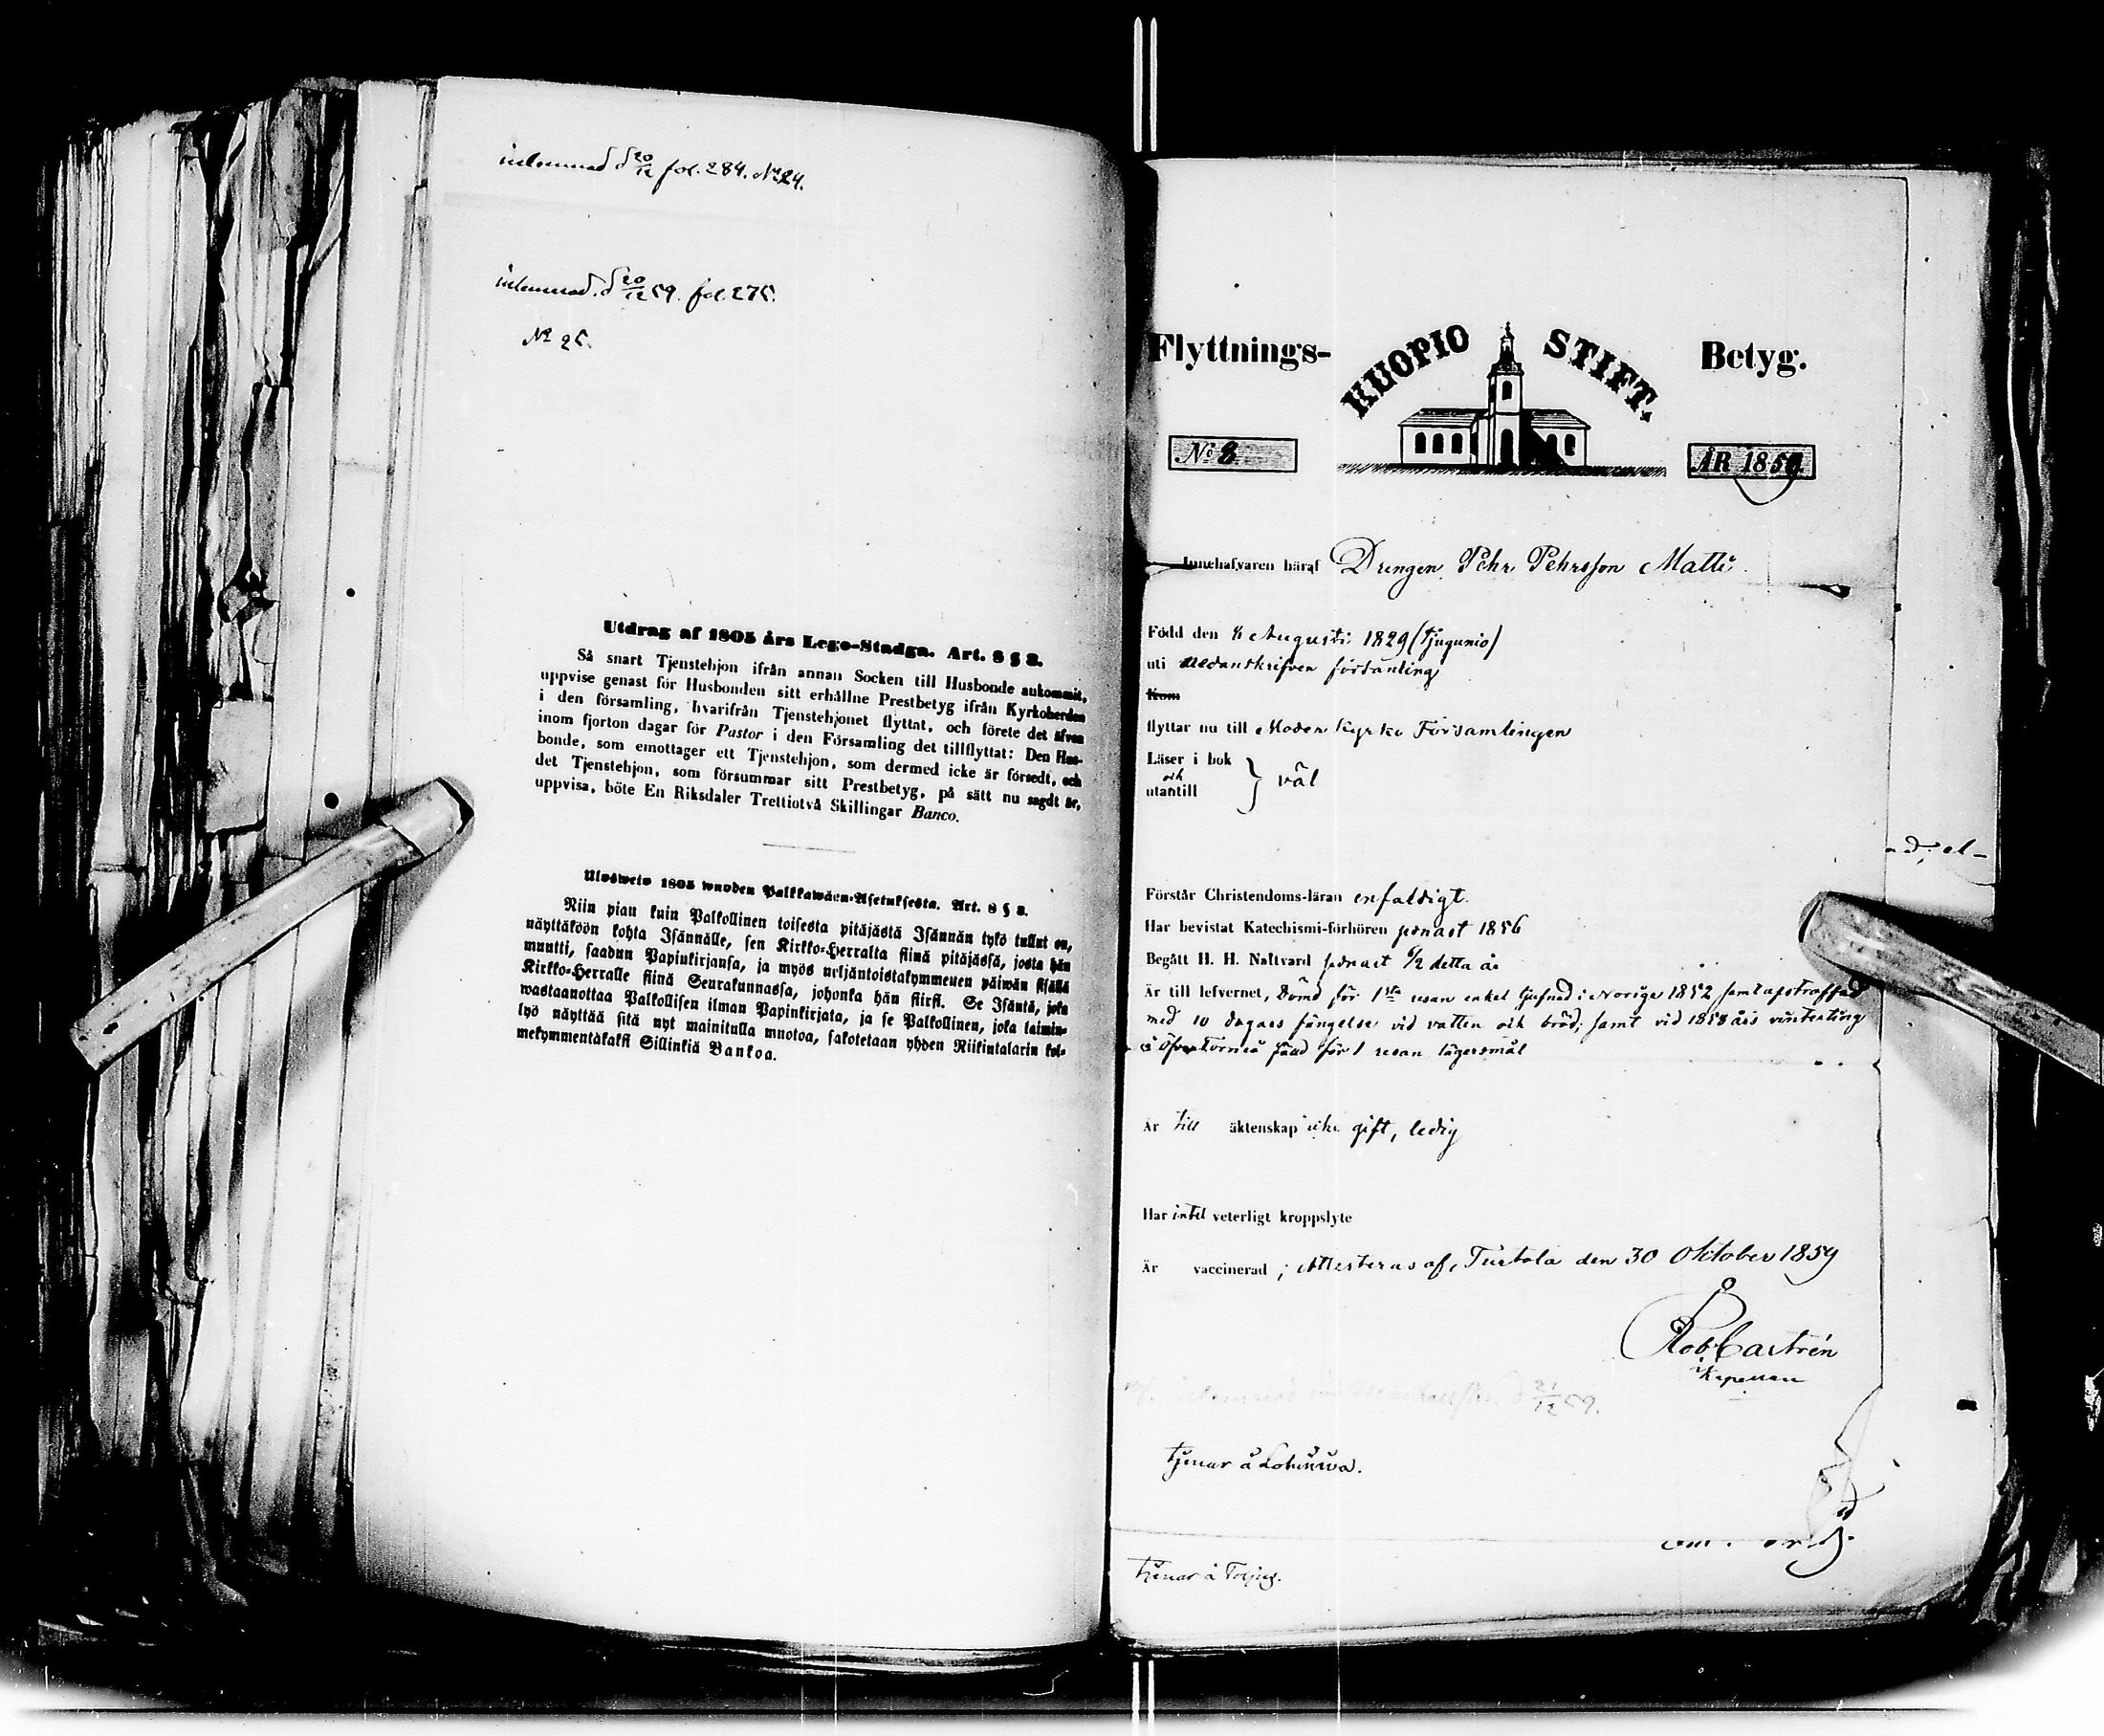 inlemnad d 20/12 fol. 284. No 24.
inlemnad. d 20/12 59. fol. 275.
No 25.
Utdrag af 1805 års Lego-Stadga. Art. 8 § 3.
Så snart Tjenstehjon ifrån annan Socken till Husbonde ankommit,
uppvise genast för Husbonden sitt erhållne Prestbetyg ifrån Kyrkoherden
i den församling, hvarifrån Tjenstehjonet flyttat, och förete det äfven
inom fjorton dagar för Pastor i den Församling det tillflyttat: Den Hus-
bonde, som emottager ett Tjenstehjon, som dermed icke är försedt, och
det Tjenstehjon, som försummar sitt Prestbetyg, på sätt nu sagdt är,
uppvisa, böte En Riksdaler Trettiotvå Skillingar Banco.
Ulosweto 1805 wuoden Palkkawäen-Asetuksesta. Art. 8 § 3.
Niin pian kuin Palkollinen toisesta pitäjästä Isännän tykö tullut on,
näyttäköön kohta Isännälle, sen Kirkko-Herralta siinä pitäjässä, josta hän
muutti, saadun Papinkirjansa, ja myös neljäntoistakymmenen päiwän sisällä
Kirkko-Herralle siinä Seurakunnassa, johonka hän siirsi. Se Isäntä, joka
wastaanottaa Palkollisen ilman Papinkirjata, ja se Palkollinen, joka laimin-
lyö näyttää sitä nyt mainitulla muotoa, sakotetaan yhden Riikintalarin kol-
mekymmentäkaksi Sillinkiä Bankoa.
Flyttnings- KUOPIO STIFT. Betyg.
No 8. ÅR 1859.
Innehafvaren häraf Drengen Pehr Pehrsson Matti
Född den 8 Augusti 1829 (tjugunio)
uti nedanskrifven församling
Kom
flyttar nu till Moder Kyrko Församlingen
Läser i bok
och
utantill } väl
Förstår Christendoms-läran enfaldigt.
Har bevistat Katechismi-förhören senast 1856
Begått H. H. Nattvard senast 6/2 detta år
Är till lefvernet, dömd för 1sta resan enkel tjufnad i Norige 1852 samt afstraffad
med 10 dagars fängelse vid vatten och bröd; samt vid 1858 års vinterting
i Öfver Torneå fälld för 1 resan lägersmål
Är till äktenskap icke gift, ledig
Har intet veterligt kroppslyte
Är vaccinerad ; Attesteras af, Turtola den 30 Oktober 1859
Rob Castrén
Kapellan
21/12 59.
tjenar å Lohiniva.
tjenar å